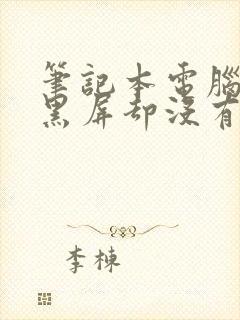 筆記本電腦
黑屏卻沒有
李棟